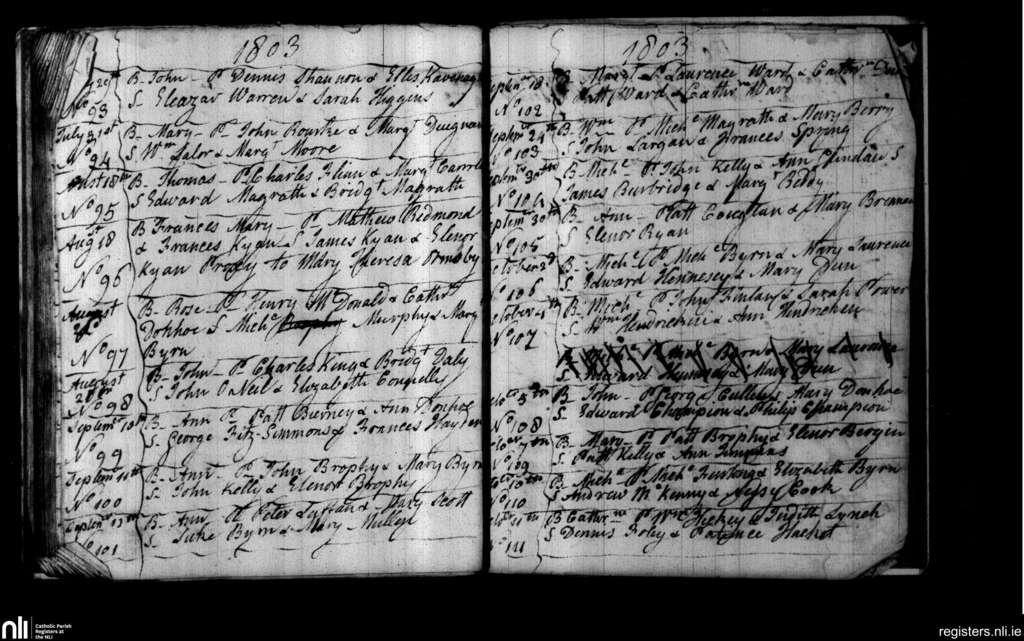 1803
B. John - Ps. Dennis Shannon & Elles Kavenagh
No 93
S. Eleazar Warren & Sarah Huggins
July 31st
B. Mary - Ps. John Rourke & Margt Duegnan
No 94
S. Wm Lalor & Margt Moore
August 18th
B. Thomas - Ps. Charles Flinn & Margt
No 95
S. Edward Magrath & Bridgt Magrath
Augst 18
B. Frances Mary - Ps. Mathew Redmond
& Frances Kyan S. James Kyan & Elenor
No 96
Kyan Proxy to Mary Theresa Ormsby
August
B. Rose - Ps. Henry McDonald & Cathrn
Donhoe S. Michl Murphy & Mary
No 97
Byrn
August
B. John - Ps. Charles King & Bridgt Daly
No 98
S. John O Neil & Elizabeth Connelly
Septemr 10th
B. Ann - Ps. Patt Bierney & Ann
No 99
S. George Fitz-Simmons & Frances Hayden
Septemr 10th
B. Ann - Ps. John Brophy & Mary Byrn
No 100
S. John Kelly & Elenor Brophy
Septemr
B. Ann Ps. Peter & Mary Scott
No 101
S. Luke Byrn & Mary Mullen
1803
Septemr 18
Ps. Laurence Ward & Cathrn
Patt Ward & Cathrn Ward
No 102
Septemr 24th
B. Wm - Ps. Michl Magrath & Mary Berry
No 103
S. John Largan & Frances Spring
B. Michl - Ps. John Kelly & Ann S
No 104
James Burbridge & Margt Beddy
Septemr 30th
B. Ann - Patt & Mary Brennan
No 105
S. Elenor Ryan
October 2d
B. Michl Ps. Michl Byrn & Mary Laurence
No 106
S. Edward Hennesey & Mary Dun
October 4th
B. Michl Ps. John Finlay & Sarah Power
No 107
S. & Ann
October 5th
B. John - Ps. Mary Donhoe
No 108
S. Edward Champion & Philip Champion
7th
B. Mary - Ps. Patt Brophy & Elenor Bergin
No 109
S. Patt Kelly & Ann Timmas
10th
B. Michl - Ps. Michl Furlong & Elizabeth Byrn
No 110
S. Andrew McKenny & Nessy Cook
11th
B. Cathrn Ps. Wm Hickey & Judith Lynch
No 111
S. Dennis Foley & Patience Hacket
nli
Catholic Parish
Registers at
the NLI
registers.nli.ie